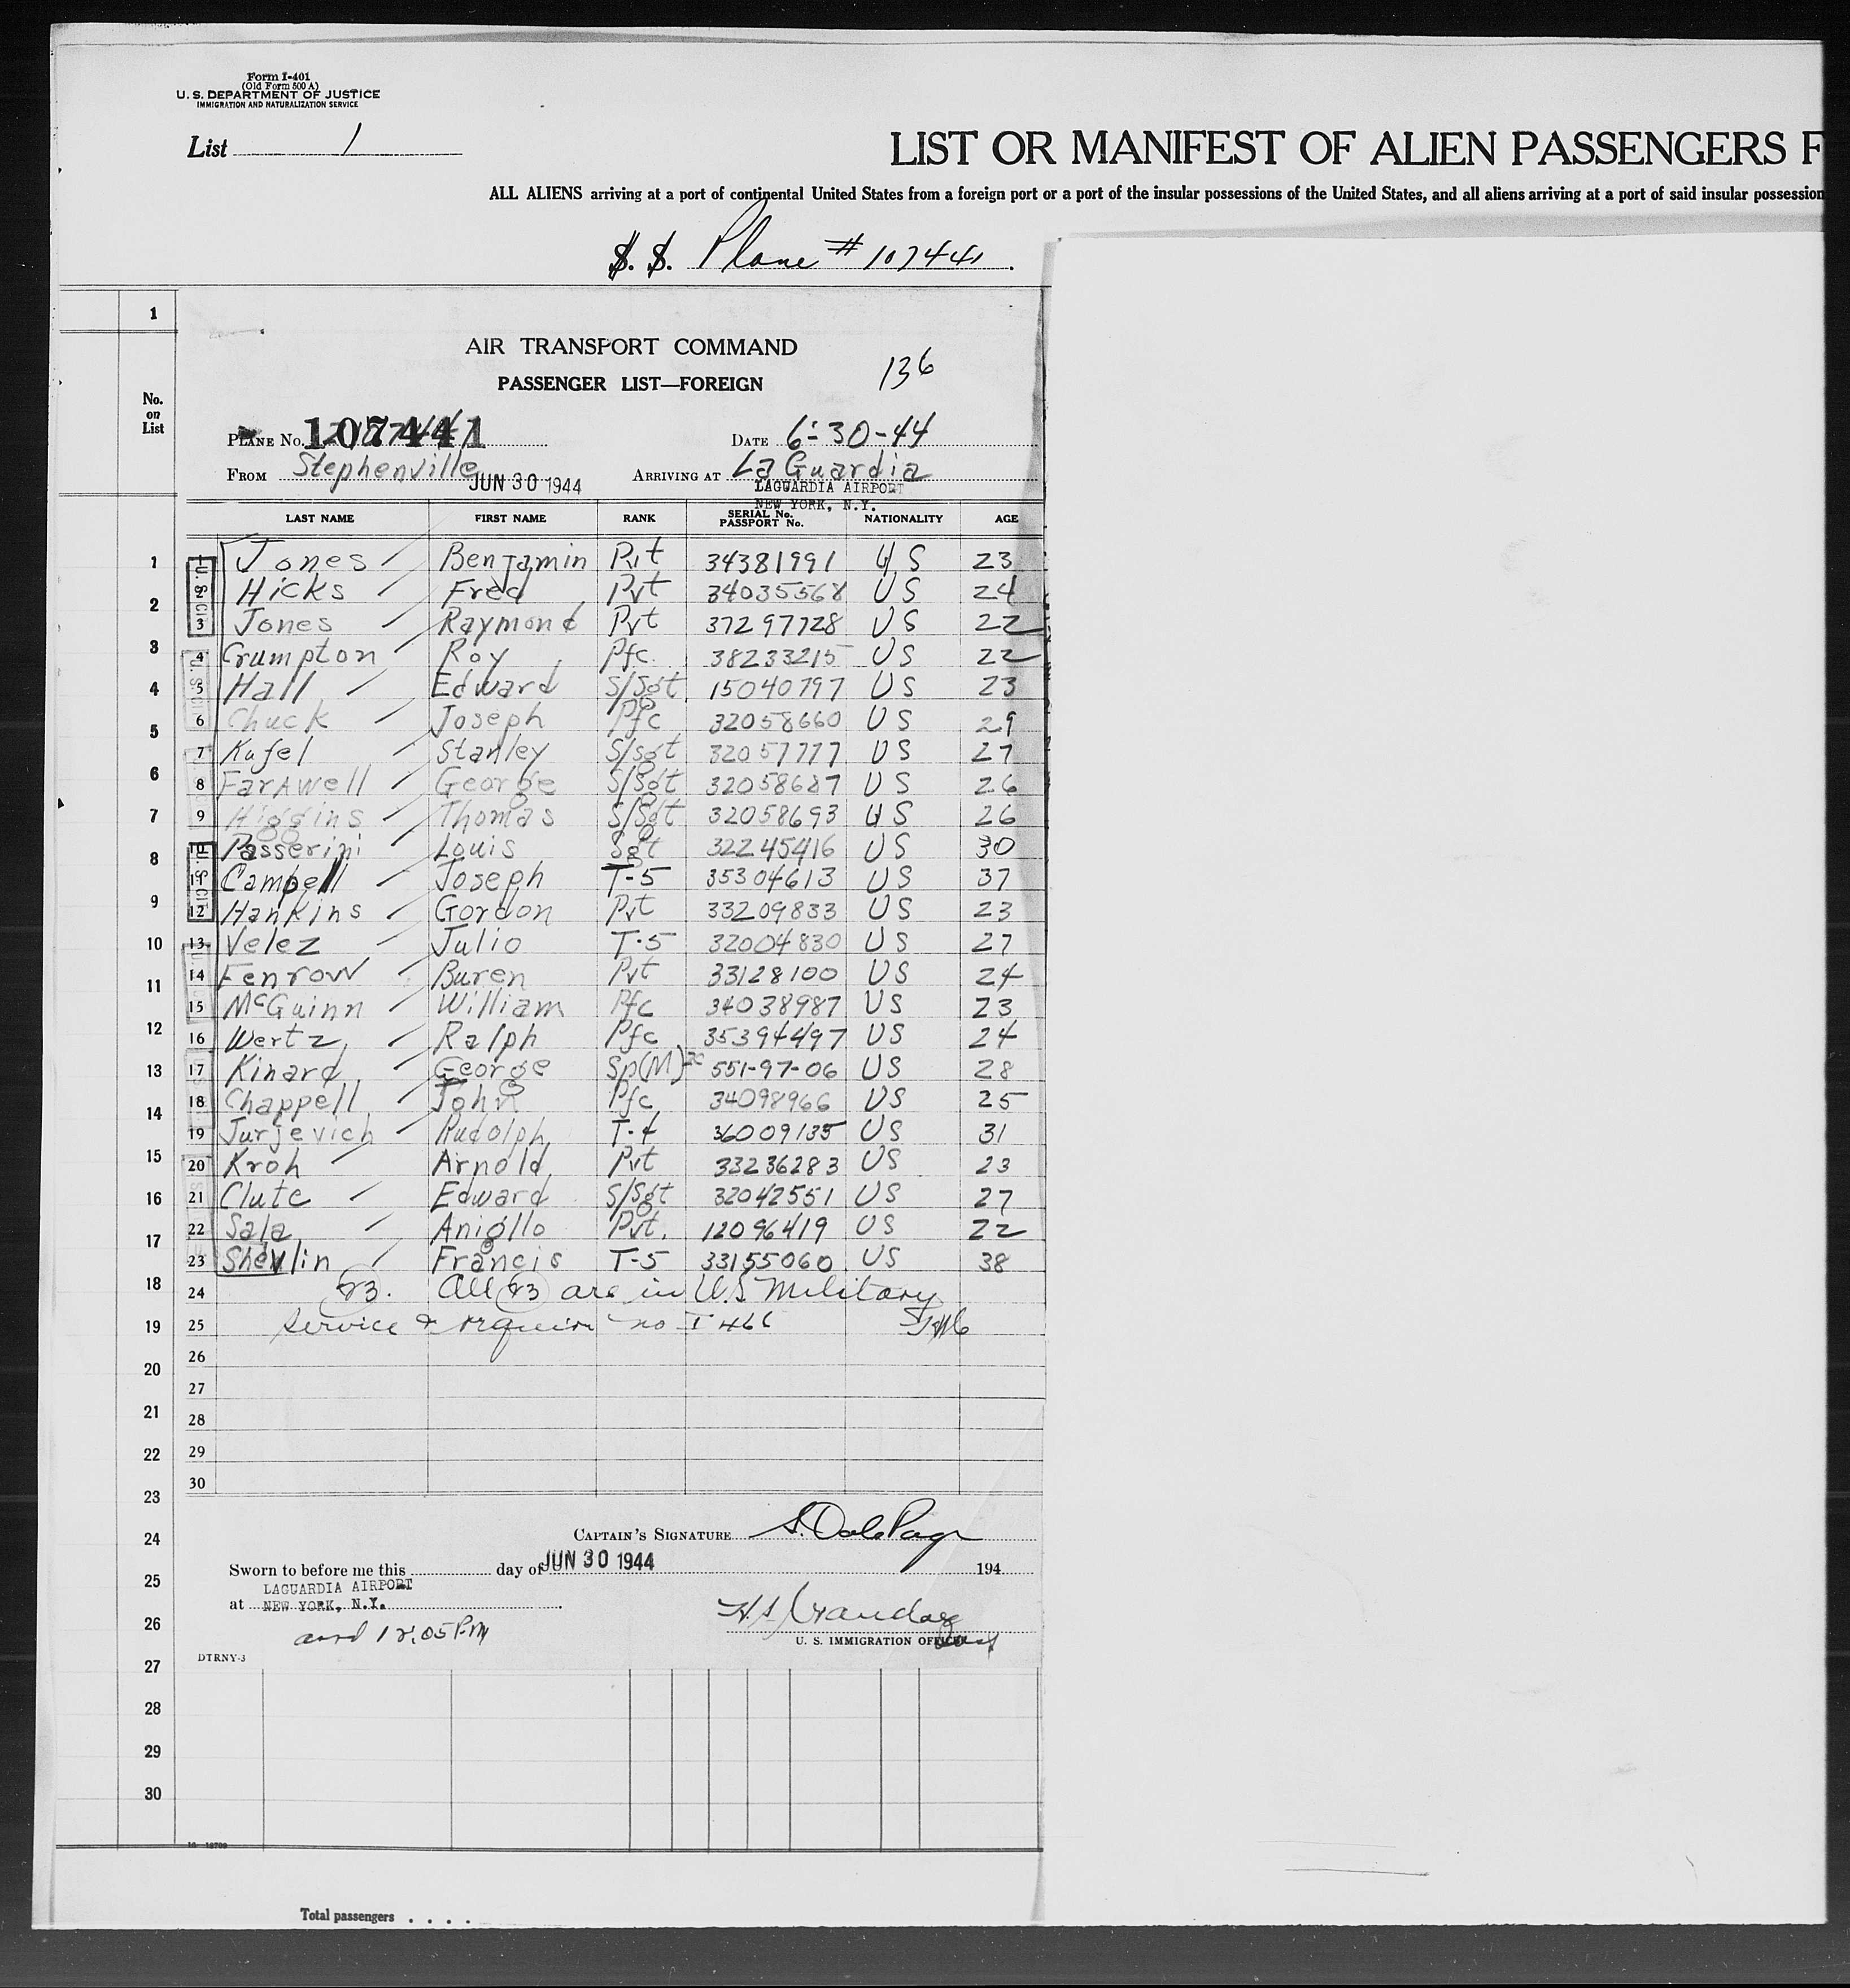 Form I-401
(Old Form 500 A)
U. S. DEPARTMENT OF JUSTICE
IMMIGRATION AND NATURALIZATION SERVICE
List 1
LIST OR MANIFEST OF ALIEN PASSENGERS F
ALL ALIENS arriving at a port of continental United States from a foreign port or a port of the insular possessions of the United States, and all aliens arriving at a port of said insular possession
S. S. Plane # 107441
1
No.
on
List
AIR TRANSPORT COMMAND
136
PASSENGER LIST—FOREIGN
PLANE No. 107441 DATE 6-30-44
FROM Stephenville JUN 30 1944 ARRIVING AT La Guardia
LAGUARDIA AIRPORT
NEW YORK, N.Y.
LAST NAME FIRST NAME RANK SERIAL No. PASSPORT No. NATIONALITY AGE
1 Jones Benjamin Pvt 34381991 US 23
2 Hicks Fred Pvt 34035568 US 24
3 Jones Raymond Pvt 37297728 US 22
4 Crumpton Roy Pfc. 38233215 US 22
5 Hall Edward S/Sgt 15040797 US 23
6 Chuck Joseph Pfc 32058660 US 29
7 Kufel Stanley S/Sgt 32057777 US 27
8 Farwell George S/Sgt 32058687 US 26
9 Higgins Thomas S/Sgt 32058693 US 26
10 Passerini Louis Sgt 32245416 US 30
11 Campell Joseph T-5 35304613 US 37
12 Hankins Gordon Pvt 33209833 US 23
13 Velez Julio T-5 32004830 US 27
14 Fenrow Buren Pvt 33128100 US 24
15 McGuinn William Pfc 34038987 US 23
16 Wertz Ralph Pfc 35394497 US 24
17 Kinard George Sp(M)2c 551-97-06 US 28
18 Chappell John Pfc 34098966 US 25
19 Jurjevich Rudolph T-4 36009135 US 31
20 Kroh Arnold Pvt 33236283 US 23
21 Clute Edward S/Sgt 32042551 US 27
22 Sala Aniello Pvt. 12096419 US 22
23 Shevlin Francis T-5 33155060 US 38
24 23. All 23 are in U.S Military
25 Service & require no I 466
26
27
28
29
30
CAPTAIN'S SIGNATURE S. Dale Page
Sworn to before me this day of JUN 30 1944 194
LAGUARDIA AIRPORT
at NEW YORK, N.Y.
arrd 12:05 P.M
U. S. IMMIGRATION OFFICER
DTRNY-3
1
2
3
4
5
6
7
8
9
10
11
12
13
14
15
16
17
18
19
20
21
22
23
24
25
26
27
28
29
30
Total passengers . . . .